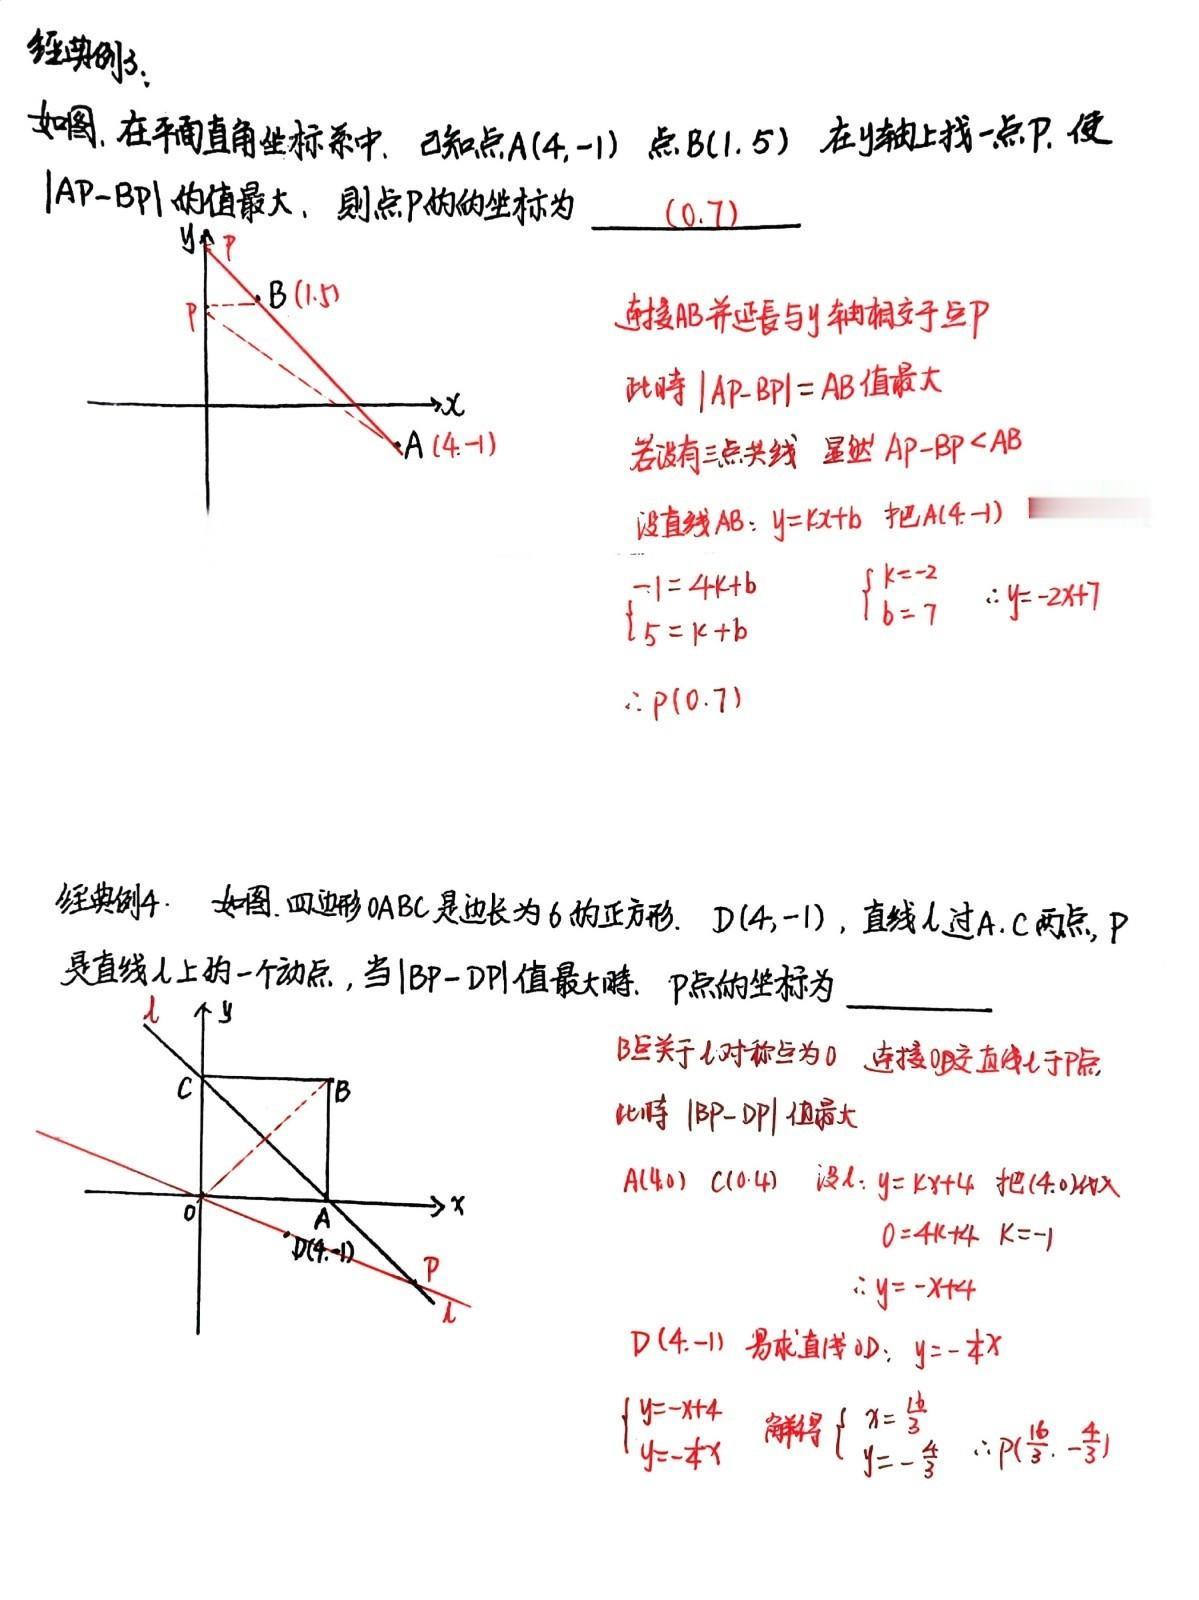 经典例3:
如图,在平面直角坐标系中,已知点A(4,-1) 点B(1.5) 在y轴上找一点P,使
|AP-BP|的值最大,则点P的的坐标为 (0.7)
y
P
B(1.5)
P
x
A(4.-1)
连接AB并延長与y轴相交于点P
此時|AP-BP|=AB值最大
若没有三点共线 显然 AP-BP<AB
设直线AB: y=kx+b 把A(4.-1)
{-1=4k+b
5=k+b
{k=-2
b=7
∴y=-2x+7
∴P(0.7)
经典例4. 如图.四边形OABC是边长为6的正方形. D(4,-1),直线l过A.C两点,P
是直线l上的一个动点,当|BP-DP|值最大時. P点的坐标为
l
y
C
B
O
A
x
D(4.-1)
P
l
B点关于l对称点为O 连接OD交直线l于P点
此時 |BP-DP|值最大
A(4.0) C(0.4) 设l: y=kx+4 把(4.0)代入
0=4k+4 k=-1
∴y=-x+4
D(4.-1) 易求直线OD: y=-1/4x
{y=-x+4
y=-1/4x
解得{x=16/3
y=-4/3
∴P(16/3.-4/3)